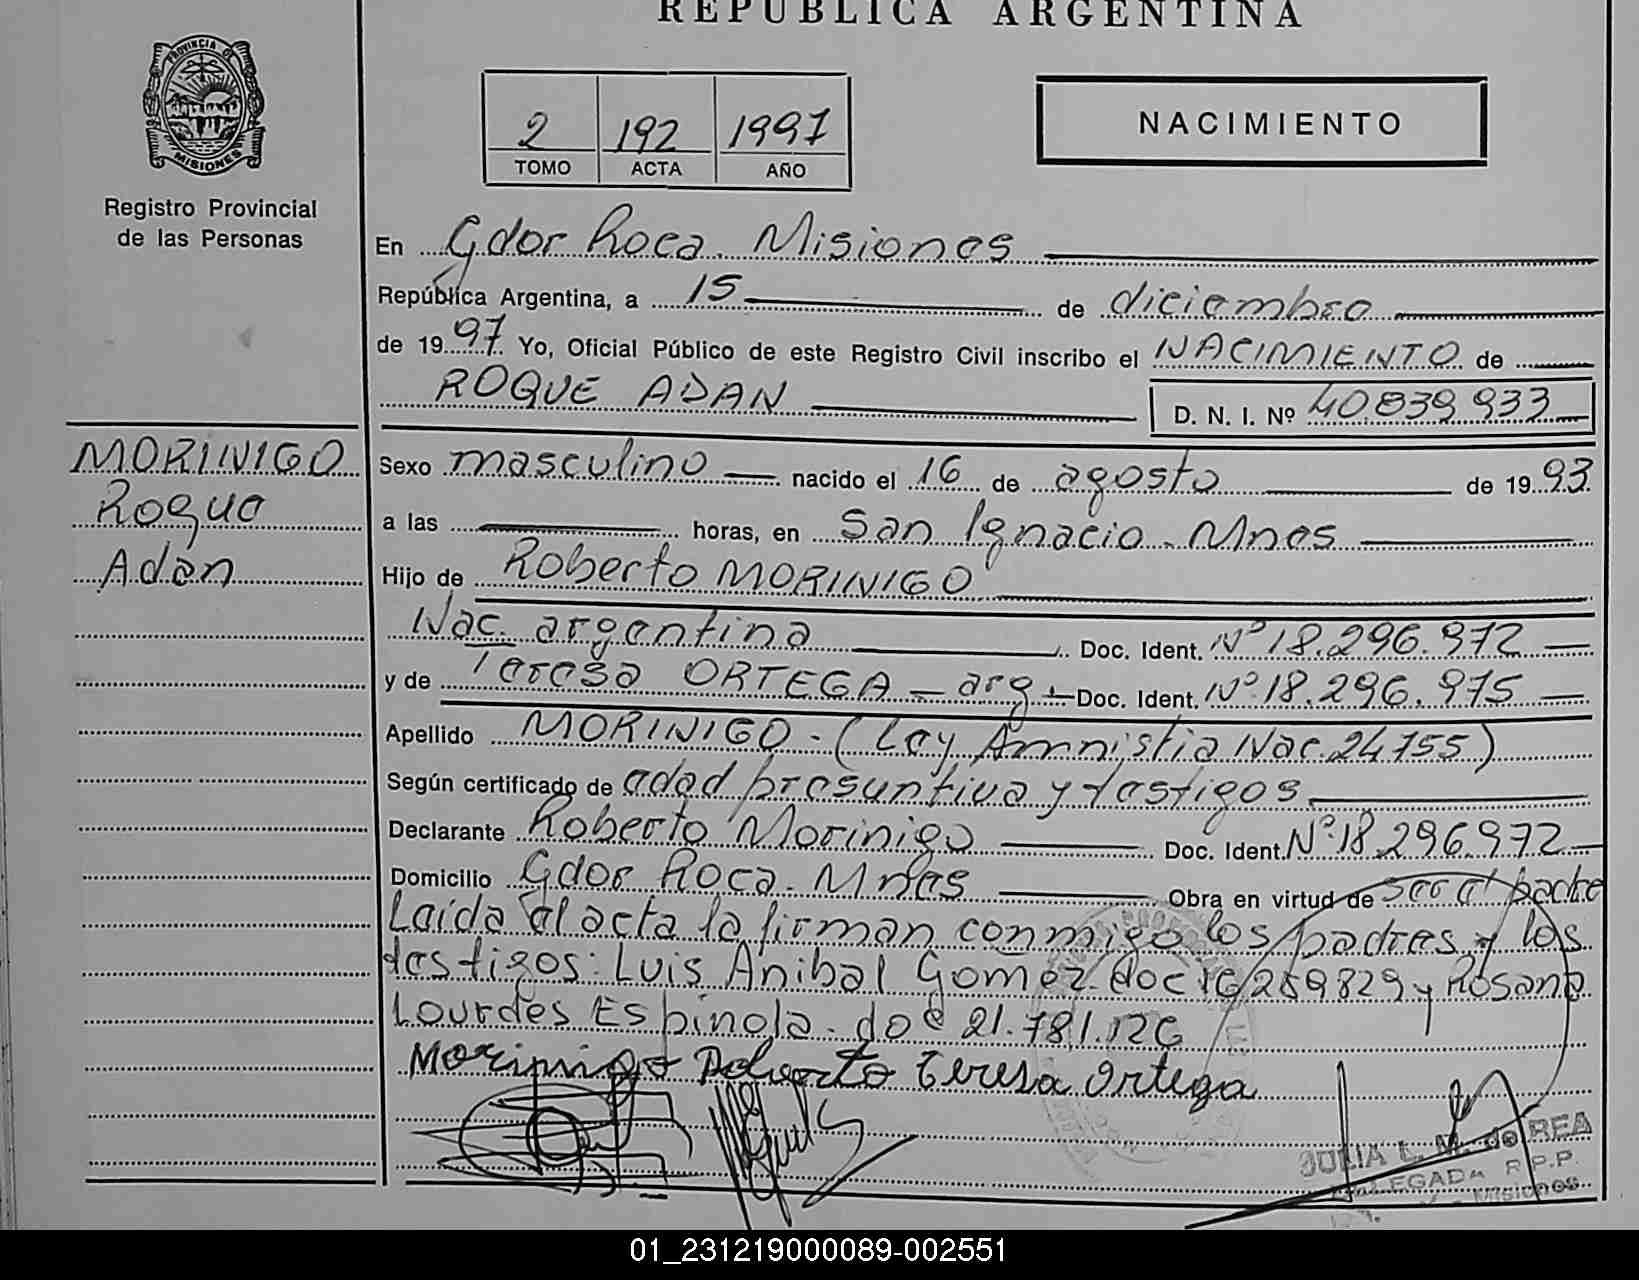 REPUBLICA ARGENTINA
PROVINCIA DE
MISIONES
Registro Provincial
de las Personas
2 192 1997
TOMO ACTA AÑO
NACIMIENTO
En Gdor Roca. Misiones
República Argentina, a 15 de diciembre
de 1997 Yo, Oficial Público de este Registro Civil inscribo el NACIMIENTO de
ROQUE ADAN D. N. I. Nº 40.839.933
MORINIGO
Roque
Adán
Sexo masculino nacido el 16 de agosto de 1993
a las horas, en San Ignacio. Mnes
Hijo de Roberto MORINIGO
Nac. argentina Doc. Ident. Nº 18.296.972
y de Teresa ORTEGA - arg. Doc. Ident. Nº 18.296.975
Apellido MORINIGO - (Ley Amnistia Nac. 24755)
Según certificado de edad presuntiva y testigos
Declarante Roberto Morinigo Doc. Ident. Nº 18.296.972
Domicilio Gdor Roca. Mnes Obra en virtud de ser el padre
Leída el acta la firman conmigo los padres y los
testigos: Luis Anibal Gomez doc 16/259829 y Rosana
Lourdes Espinola. doc 21.781.126
Morinigo Roberto Teresa Ortega
JULIA L. M. de REA
DELEGADA R.P.P.
Misiones
01_231219000089-002551